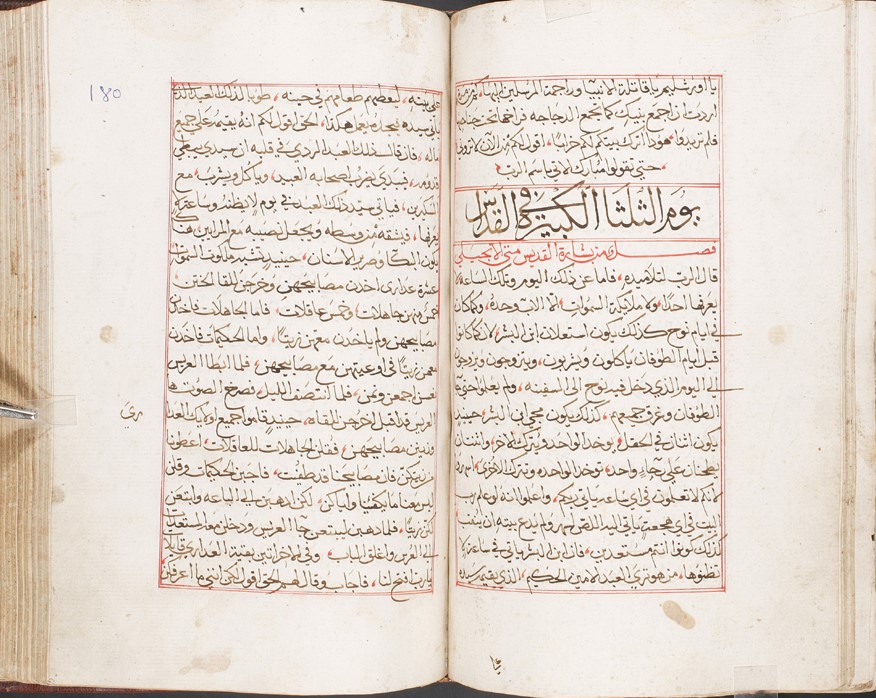 يا اورشليم يا قاتلة الانبيا وراجمة المرسلين اليها، كم من مره
اردت ان اجمع بنيك كما تجمع الدجاجه فراخها تحت جناحيها
فلم تريدوا، هودا اترك بيتكم لكم خرابًا، اقول لكم من الآن لا تروني
حتي تقولوا مبارك الاتي باسم الرب
يوم الثلثا الكبير في القداس
فصل من بشارة القديس متي الانجيلي
قال الرب لتلاميذه، فاما عن ذلك اليوم وتلك الساعه لا
يعرفها احدًا ولا ملايكة السموات الا الاب وحده، وكما كان
في ايام نوح كذلك يكون استعلان ابن البشر، لان كما كانوا
قبل ايام الطوفان ياكلون ويشربون، ويتزوجون ويزوجون
الي اليوم الذي دخل فيه نوح الي السفينه، ولم يعلموا حتي جا
الطوفان وغرق جميعهم، كذلك يكون مجي ابن البشر، حينيدٍ
يكون اثنان في الحقل، يوخد الواحد ويترك الاخر، واثنتان
يطحنان علي رحاءٍ واحد، توخد الواحده وتترك الاخري، اسهروا
لانكم لا تعلمون في اي ساعه ياتي ربكم، واعلموا انه لو علم رب
البيت في اي هجعة ياتي اليه اللص لسهر ولم يدع بيته ان ينقب
كذلك كونوا انتم مستعدين، فان ابن البشر ياتي في ساعة لا
تظنوها، من هو تري العبد الامين الحكيم، الذي يقيمه سيده
180
علي بيته، ليعطيهم طعامهم في حينه، طوبا لذلك العبد الذي
ياتي سيده فيجده يعمل هكذا، الحق اقول لكم انه يقيمه علي جميع
ماله، فان قال ذلك العبد الردي في قلبه ان سيدي يبطي
قدومه، فيبتدي يضرب اصحابه العبيد، وياكل ويشرب، مع
السكرين، فياتي سيد ذلك العبد في يوم لا يظنه وساعة لا
يعرفها، فيشقه من وسطه ويجعل نصيبه مع المراين، هناك
يكون البكا وصرير الاسنان، حينيدٍ تشبه ملكوت السموات
عشرة عداري اخدن مصابيحهن وخرجن للقا الختن
خمسٌ منهن جاهلات، وخمسٌ عاقلات، فاما الجاهلات فاخدن
مصابيحهن ولم ياخدن معهن زيتًا، واما الحكيمات فاخدن
معهن زيتًا في اوعيتهن مع مصابيحهن، فلما ابطا العريس
نعسن اجمعهن ونمن، فلما انتصف الليل، فصرخ الصوت ها
العريس قد اقبل اخرجن للقاه، حينيدٍ قاموا جميع اوليك العداري
وزينن مصابيحهن، فقلن الجاهلات للعاقلات، اعطونا
من زيتكن فان مصابيحنا قد طفيت، فاجبن الحكيمات وقلن
ليس معنا ما يكفينا واياكن، لكن ادهبن الي الباعه وابتعن
لكن زيتًا، فلما دهبن ليبتعن جا العريس ودخلن معه المستعدات
الي العرس واغلق الباب، وفي الاخر اتين بقية العداري قايلات
يا رب افتح لنا، فاجاب وقال لهم الحق اقول لكن انني ما اعرفكن